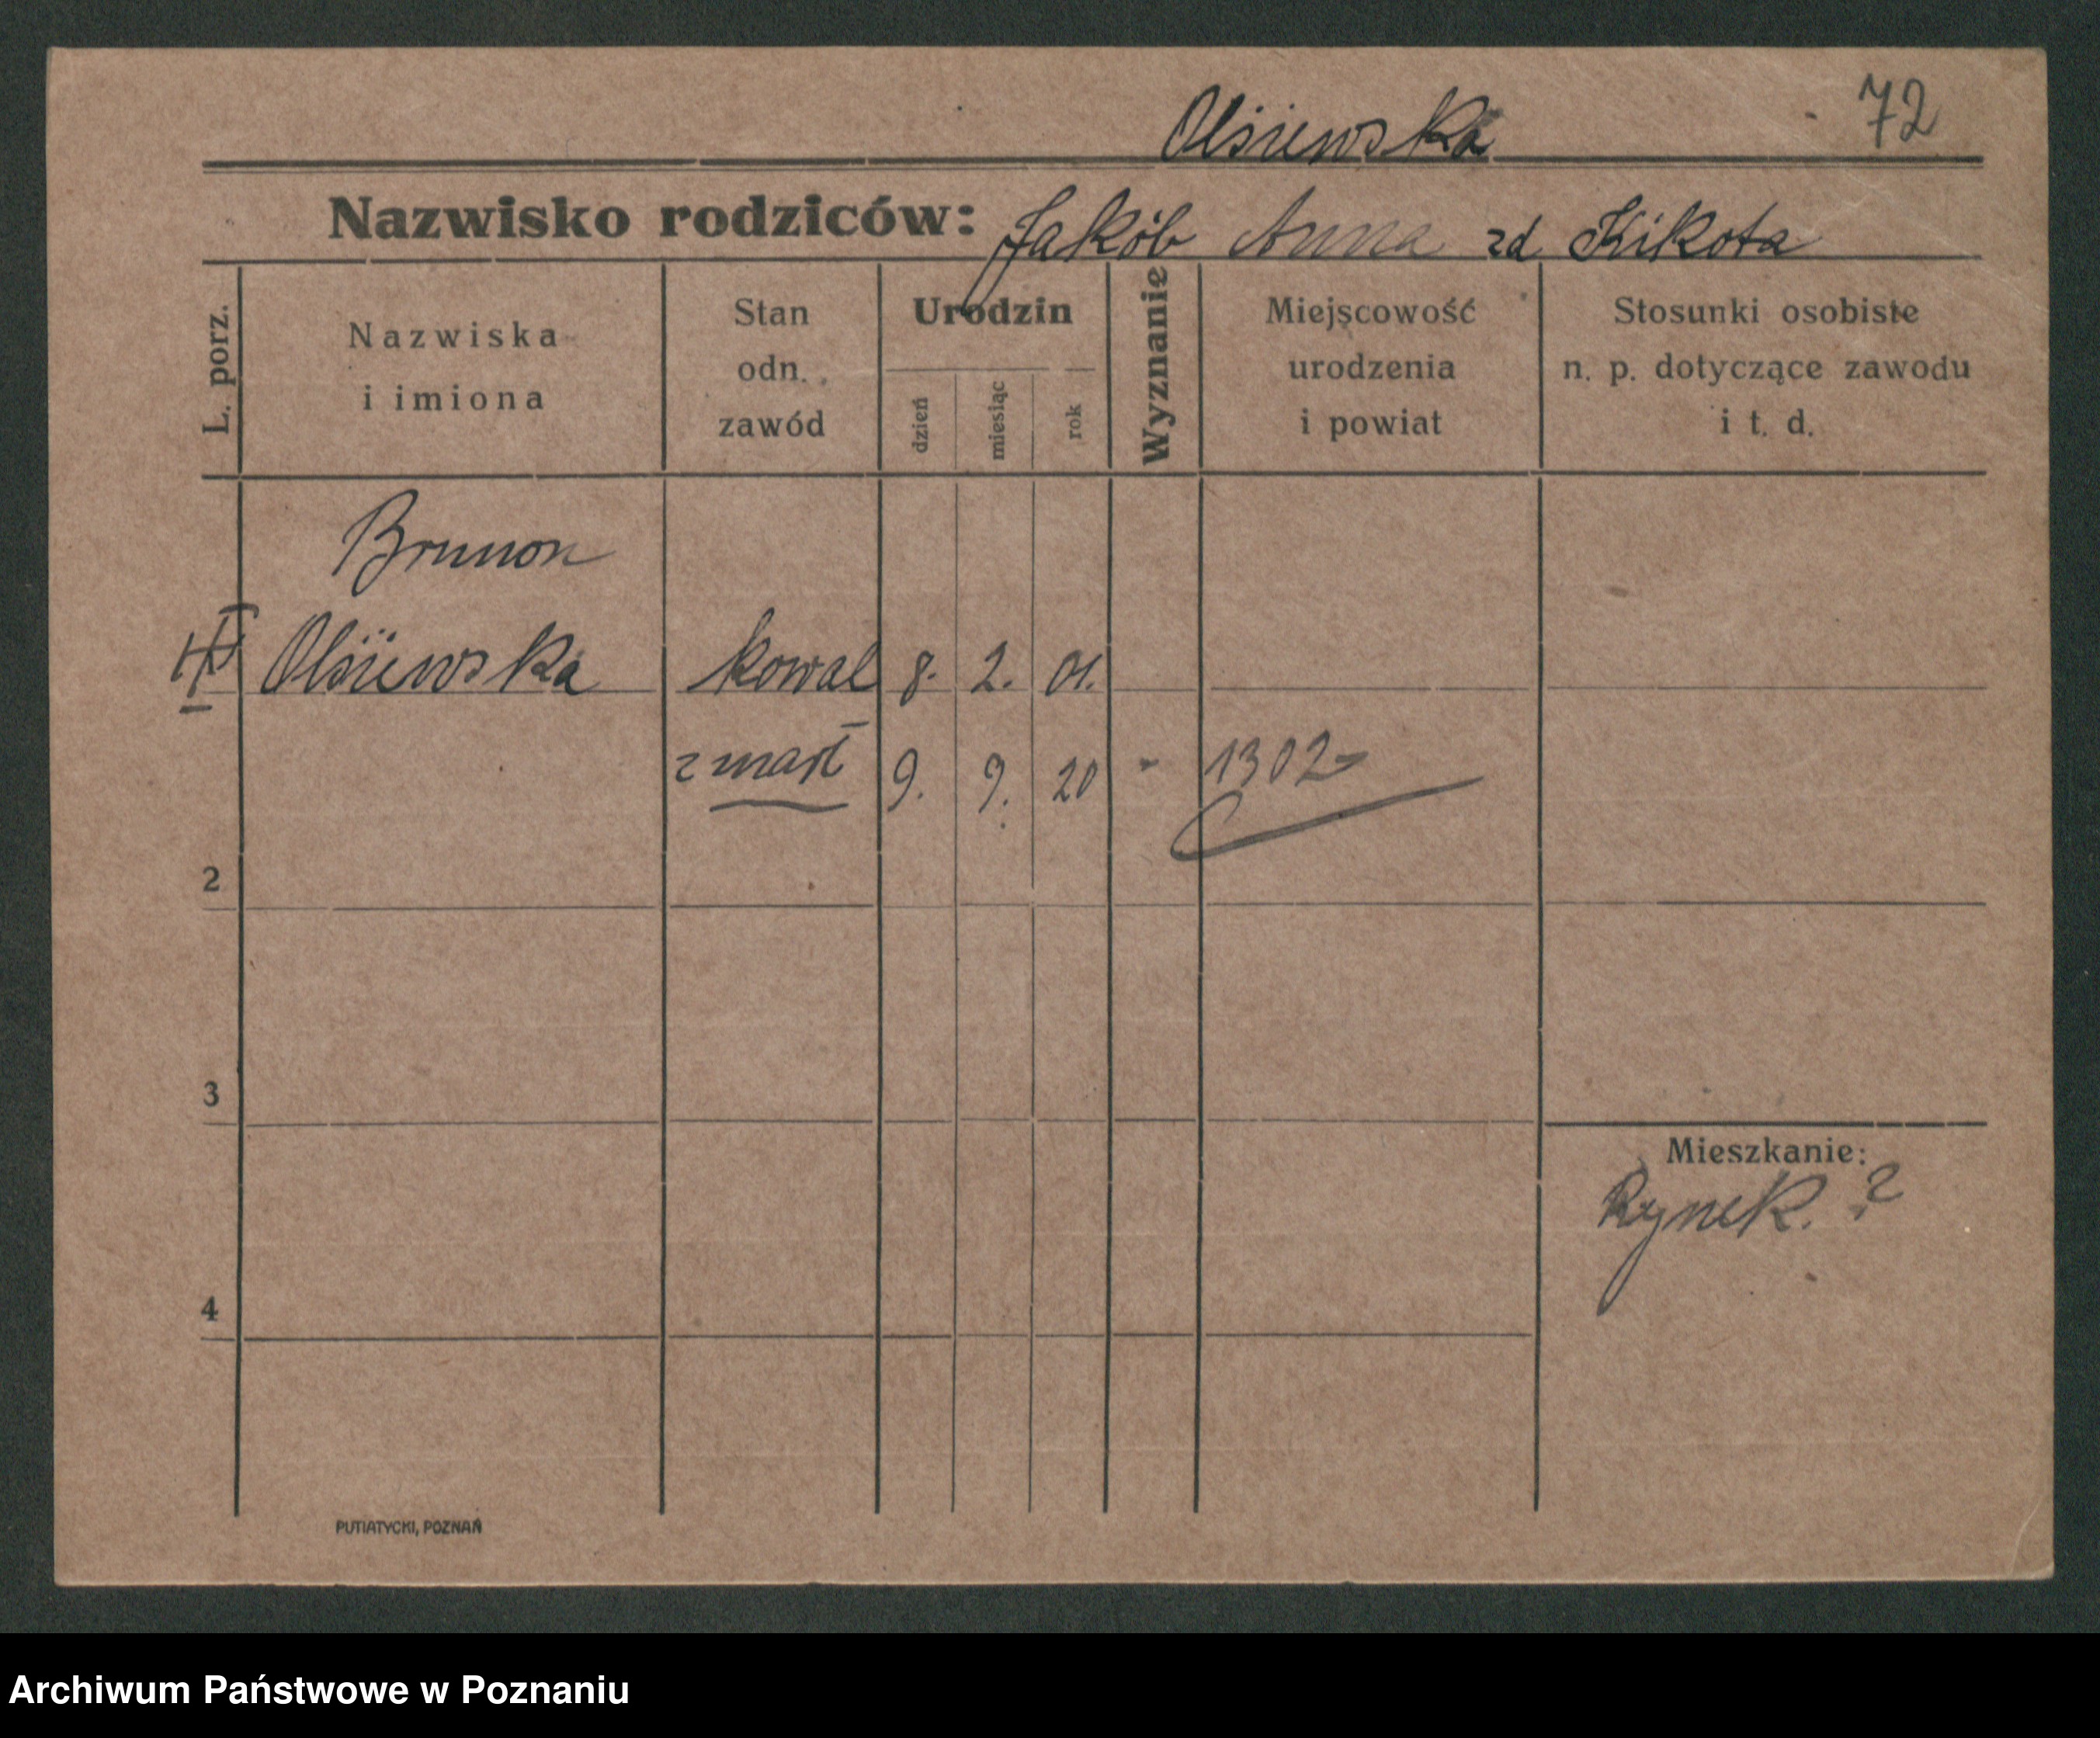 72
Olsiewska
Nazwisko rodziców: Jakób Anna zd Kikota
L. porz.
Nazwiska
i imiona
Stan
odn.
zawód
Urodzin
dzień
miesiąc
rok
Wyznanie
Miejscowość
urodzenia
i powiat
Stosunki osobiste
n. p. dotyczące zawodu
i t. d.
Brunon
Olsiewska kowal 8. 2. 01.
zmarł 9. 9. 20 - 1302
2
3
Mieszkanie:
Rynek. ?
4
PUTIATYCKI, POZNAŃ
Archiwum Państwowe w Poznaniu